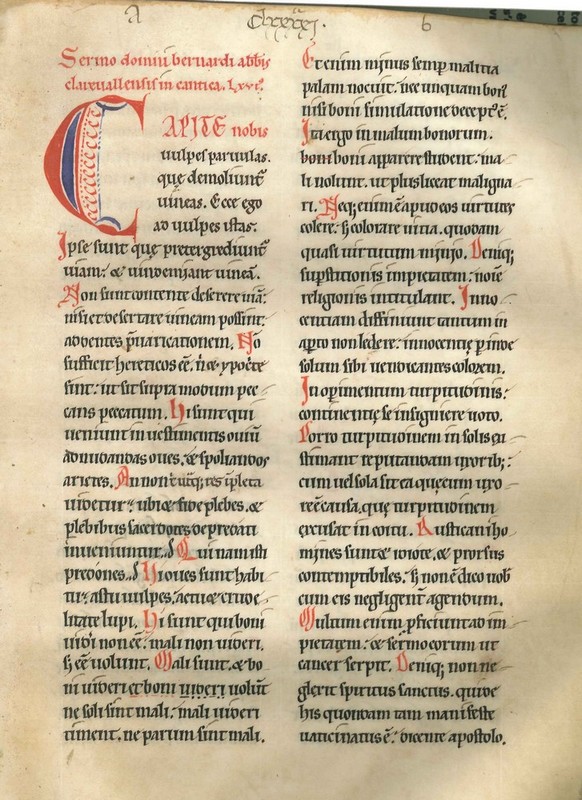 A
clxxxxi.
b
Sermo domini bernardi abbis
clarevallensis in cantica. lxvi⁹.
CAPITE nobis
vulpes parvulas.
quę demoliunt᷑
vineas. Ecce ego
ad vulpes istas.
Ipse sunt quę pretergrediunt᷑
viam: & vindemiant vineā.
Non sunt contente deserere viā:
nisi et desertare vineam possint:
addentes p̄varicationem. Nō
sufficit hereticos eē. n̄ & ypoc̄te
sint: ut sit supra modum pec-
cans peccatum. Hi sunt qui
veniunt in vestimentis oviū
ad nudandas oves, & spoliandos
arietes. An non
videtur: ubi & fide plebes. &
plebibus sacerdotes depredati
inveniuntur. Qui nam isti
predones. Hi oves sunt habi-
tu: astu vulpes. actu & crude-
litate lupi. Hi sunt qui boni
videri non eē: mali non videri.
s; eē volunt. Mali sunt. & bo-
ni videri et boni videri volūt
ne soli sint mali: mali videri
timent. ne parum sint mali.
Etenim minus semp malitia
palam nocuit. nec unquam bon⁹
nisi boni simulatione decept⁹ ē.
Ita ergo in malum bonorum.
boni boni apparere student: ma-
li nolunt. ut plus liceat maligna-
ri. Neq; enim ē apud eos virtutes
colere: s; colorare vitia. quodam
quasi virtutum minio. Deniq;
sup̄stitionis impietatem: noīe
religionis intitulant. Inno-
centiam diffiniunt tantum in
apto non ledere: innocentię pinde
solum sibi vendicantes colorem.
In operimentum turpitudinis:
continentię se insigniere voto.
Porro turpitudinem in solis ęx-
stimant reputandam uxorib;:
cum vel sola sit ea quę cum uxo-
re ē causa. quę turpitudinem
excusat in coitu. Rusticani ho-
mines sunt & idiote. & prorsus
contemptibiles. s; non ē dico vob̄
cum eis negligent᷑ agendum.
Multum enim p̱ficiunt ad im-
pietatem: & sermo eorum ut
cancer serpit. Deniq; non ne-
glexit spiritus sanctus. qui de
his quondam tam manifeste
vaticinatus ē: dicente apostolo.